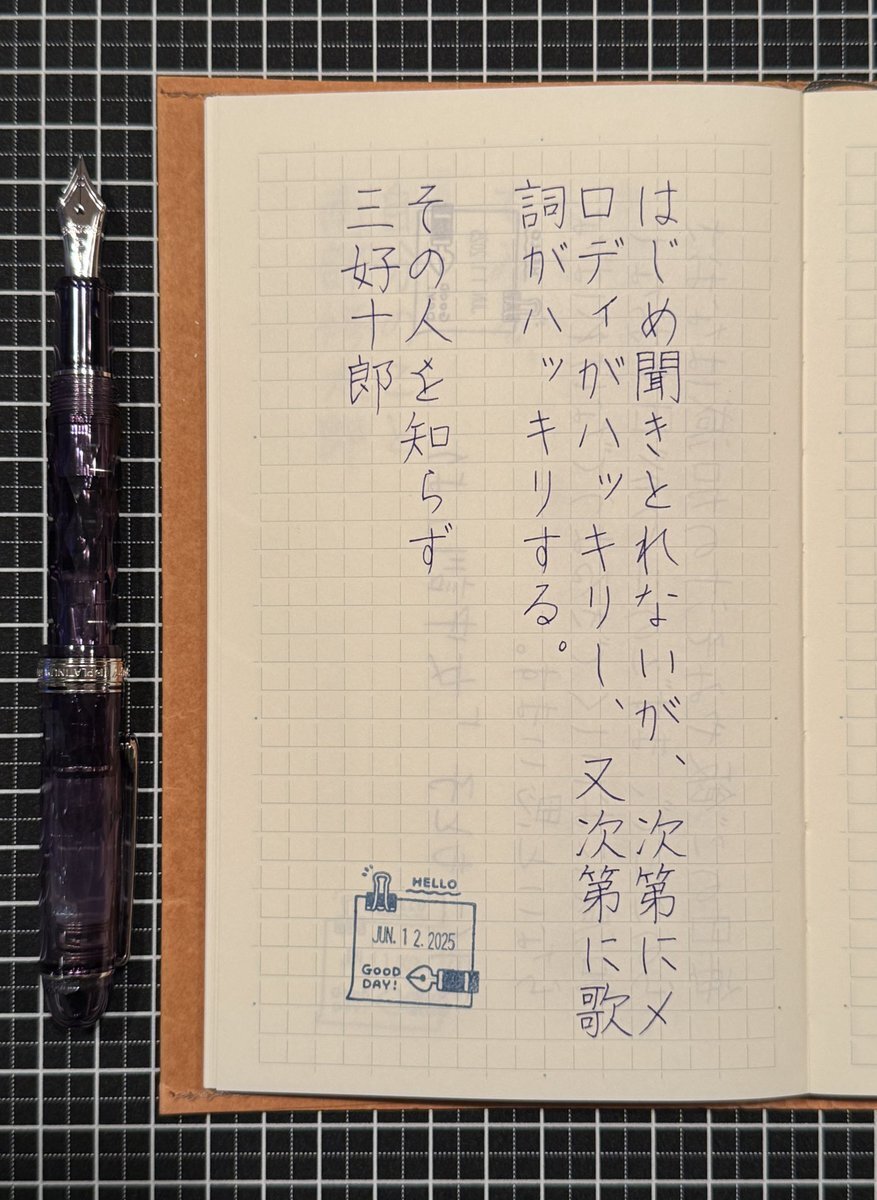 はじめ聞きとれないが、次第にメ
ロディがハッキリし、又次第に歌
詞がハッキリする。
その人を知らず
三好十郎
HELLO
JUN. 12. 2025
GOOD
DAY!
PLATINUM